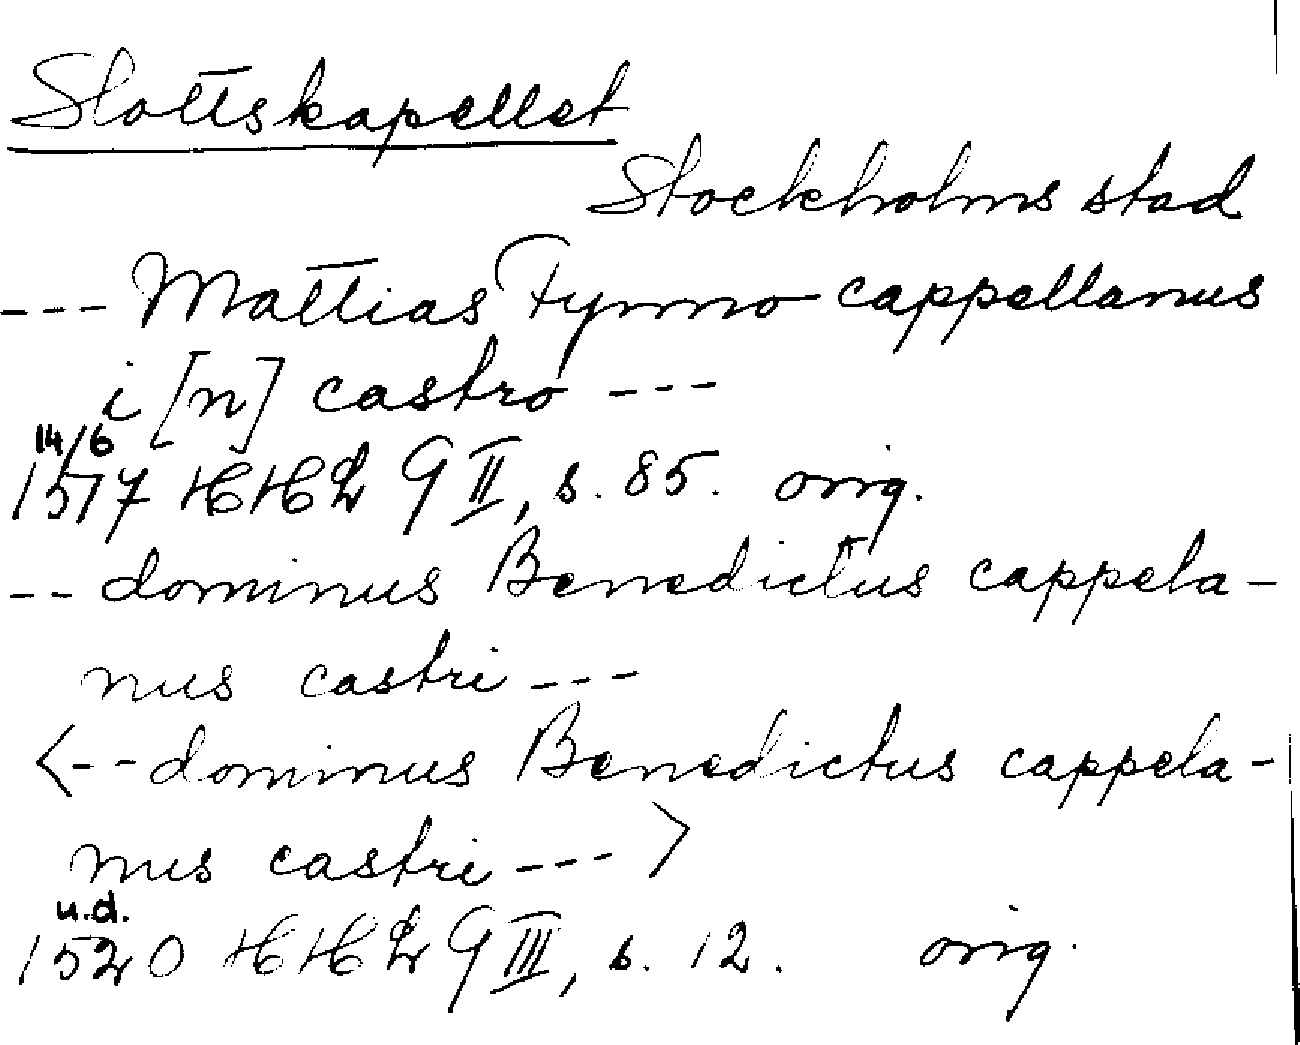 Slottskapellet
Stockholms stad
--- Mattias Fynno cappellanus
i [n] castro ---
14/6
1517 HHL G II, s. 85. orig.
-- dominus Benedictus cappela-
nus castri ---
<-- dominus Benedictus cappela-
nus castri --- >
u.d.
1520 HHL G III, s. 12. orig.